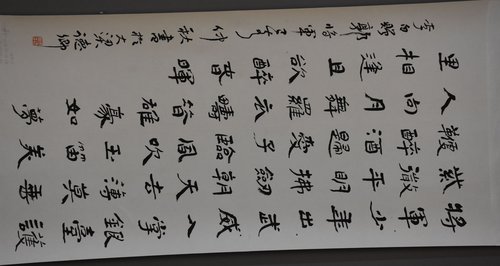 將軍少年出武威入掌銀臺護
紫微平明拂劍朝天去薄莫垂
鞭醉酒歸愛子臨風吹玉笛美
人向月舞羅衣疇昔雄豪如夢
里相逢且欲醉春暉
李白贈郭將軍 仲秋書於大梁德卿